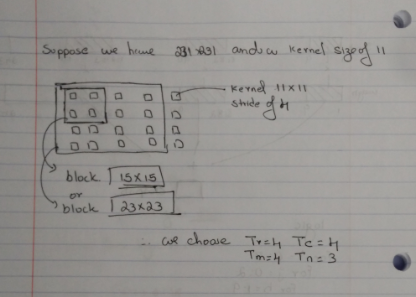 Suppose we have 231x231 and a kernel size of 11
kernel 11x11
stride of 4
block 15x15
or
block 23x23
∴ we choose Tr=4 Tc=4
Tm=4 Tn=3